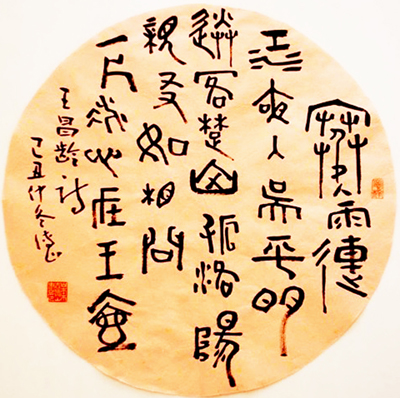 寒雨連
江夜入吳平明
送客楚山孤洛陽
親友如相問
一片冰心在玉壺
王昌龄诗
己丑仲冬